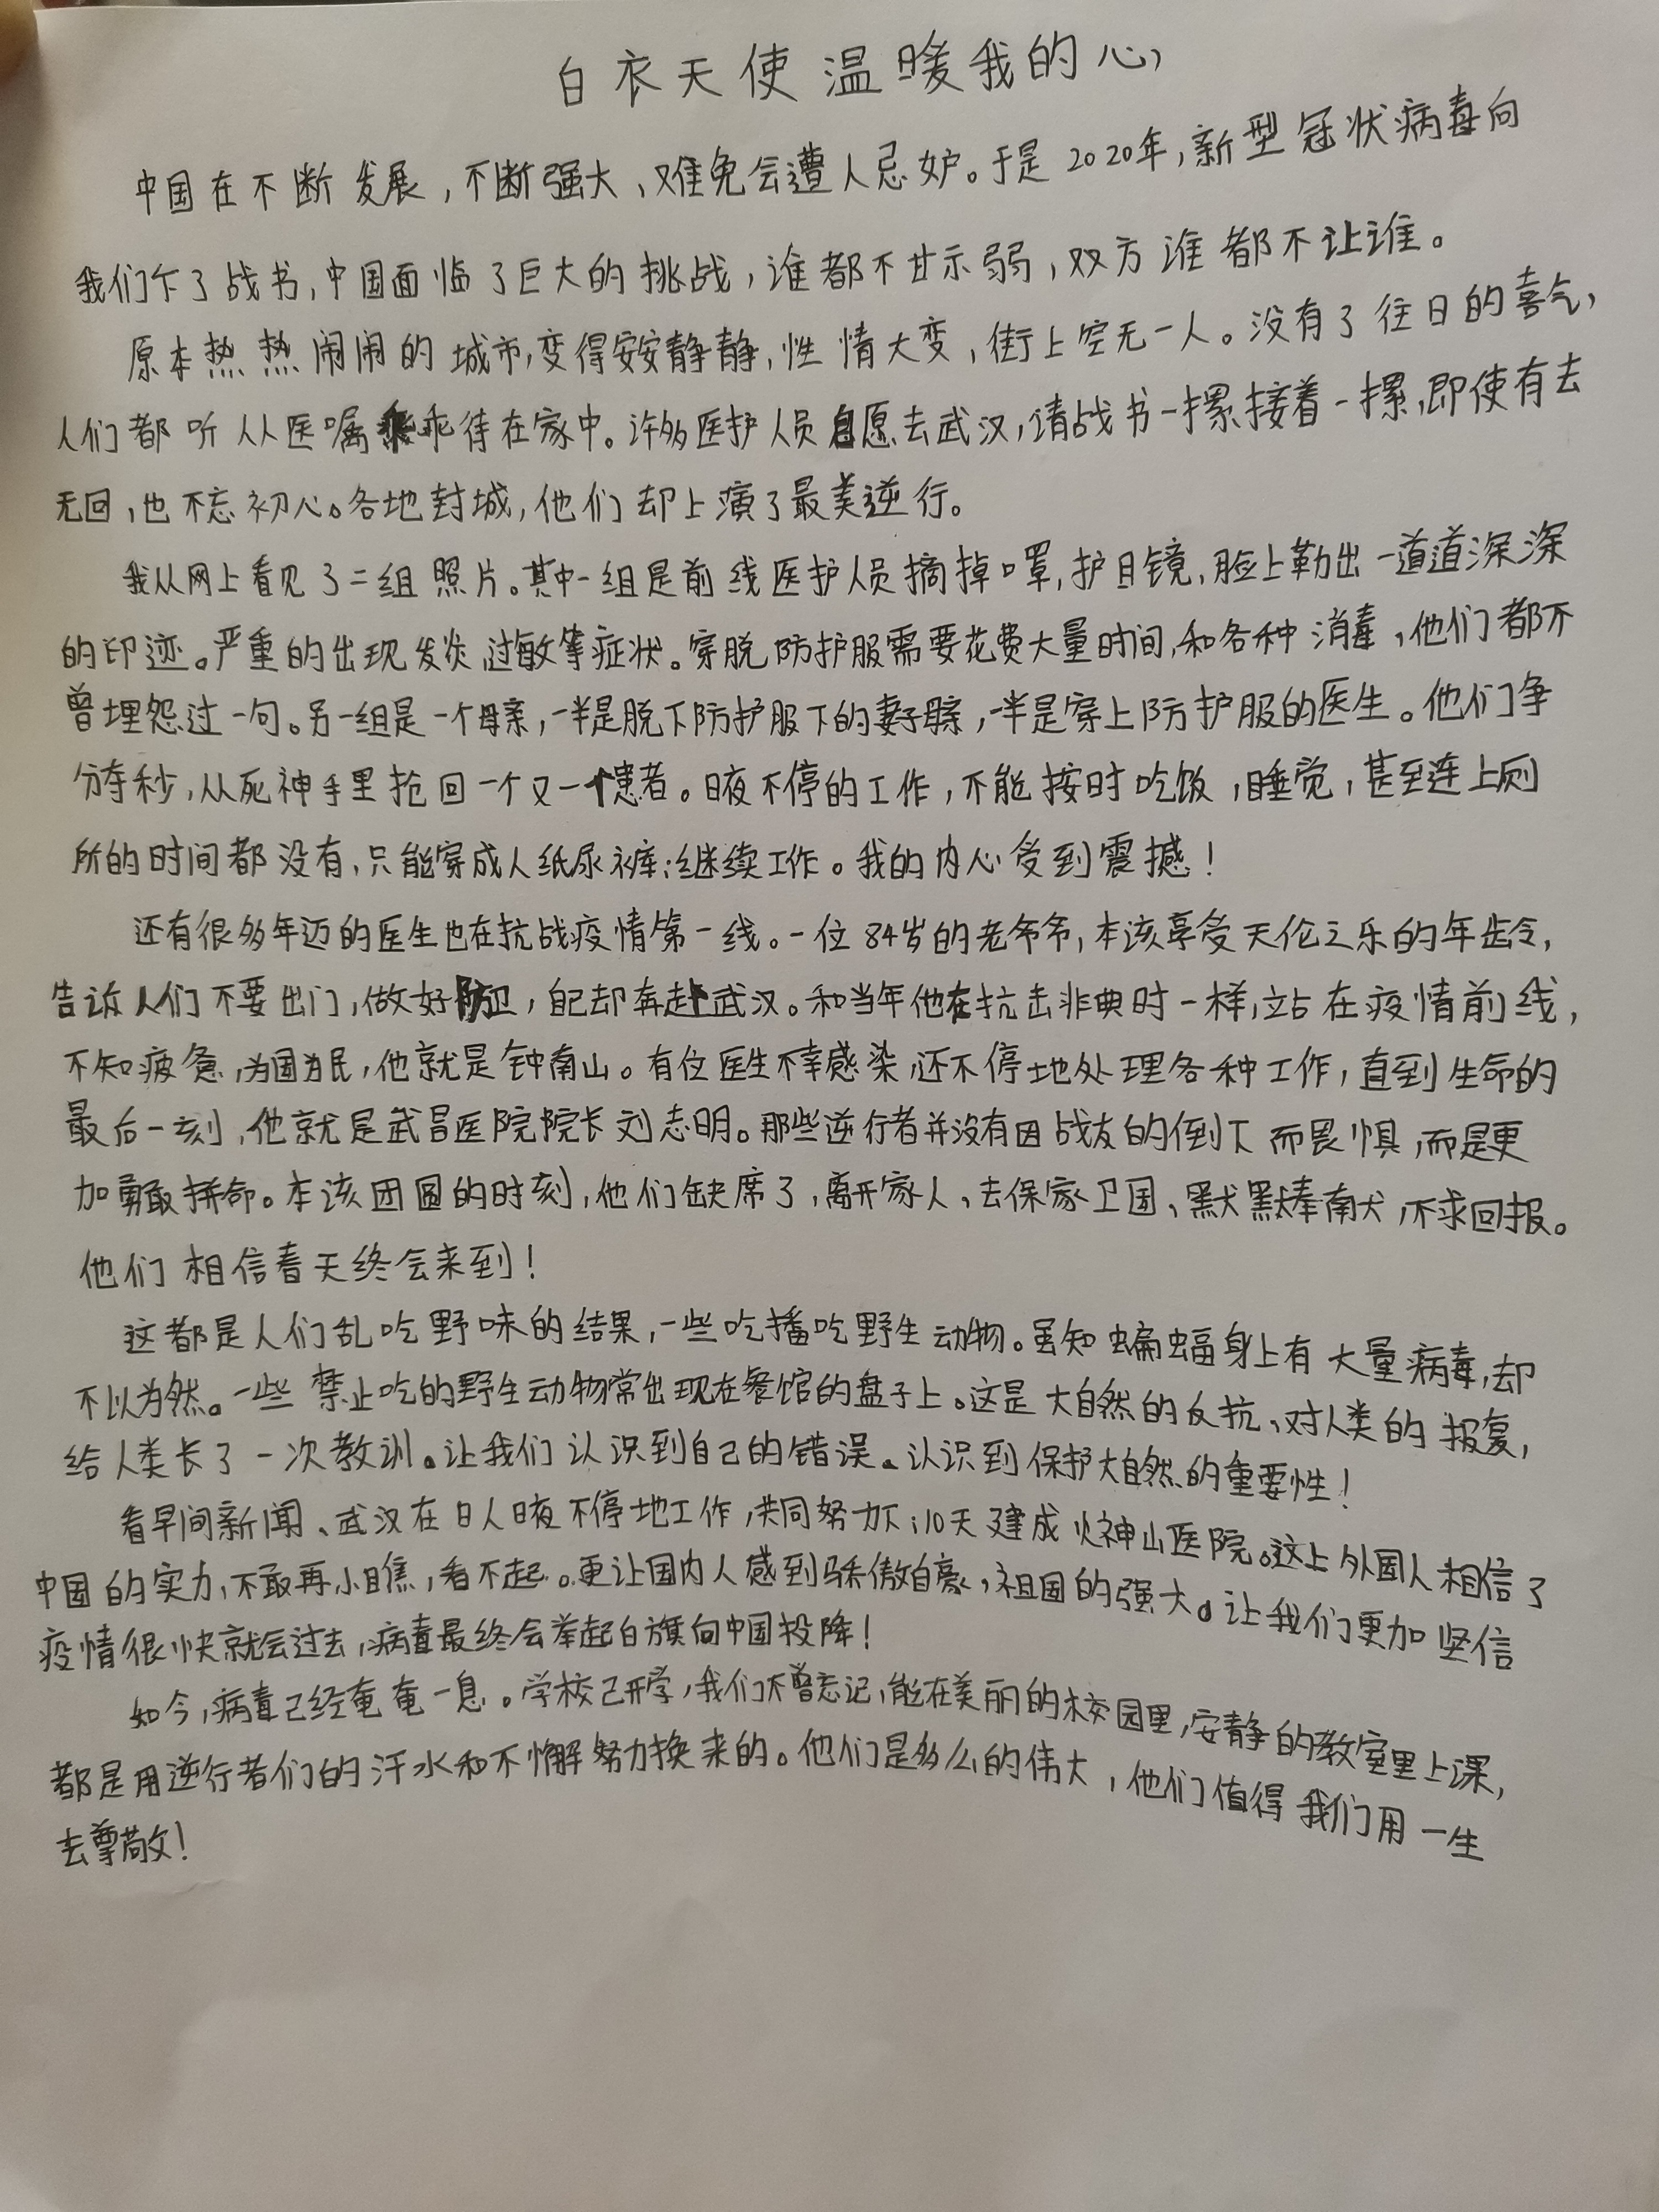 白衣天使温暖我的心
中国在不断发展,不断强大、难免会遭人忌妒。于是2020年,新型冠状病毒向
我们下了战书,中国面临了巨大的挑战,谁都不甘示弱,双方谁都不让谁。
原本热热闹闹的城市,变得安安静静,性情大变,街上空无一人。没有了往日的喜气,
人们都听从医嘱乖待在家中。许多医护人员自愿去武汉,请战书一摞接着一摞,即使有去
无回,也不忘初心。各地封城,他们却上演了最美逆行。
我从网上看见了二组照片。其中一组是前线医护人员摘掉口罩,护目镜、脸上勒出一道道深深
的印迹。严重的出现发炎,过敏等症状。穿脱防护服需要花费大量时间,和各种消毒,他们都不
曾埋怨过一句。另一组是一个母亲,一半是脱下防护服下的妻子母亲,一半是穿上防护服的医生。他们争
分夺秒,从死神手里抢回一个又一个患者。日夜不停的工作,不能按时吃饭,睡觉,甚至连上厕
所的时间都没有,只能穿成人纸尿裤;继续工作。我的内心受到震撼!
还有很多年迈的医生也在抗战疫情第一线。一位84岁的老爷爷,本该享受天伦之乐的年龄,
告诉人们不要出门,做好防卫,自己却奔赴武汉。和当年他在抗击非典时一样,站在疫情前线,
不知疲惫,为国为民,他就是钟南山。有位医生不幸感染,还不停地处理各种工作,直到生命的
最后一刻,他就是武昌医院院长刘志明。那些逆行者并没有因战友的倒下而畏惧,而是更
加勇敢拼命。本该团圆的时刻,他们缺席了,离开家人、去保家卫国、默默奉献,不求回报。
他们相信春天终会来到!
这都是人们乱吃野味的结果,一些吃播吃野生动物。虽知蝙蝠身上有大量病毒,却
不以为然。一些禁止吃的野生动物常出现在餐馆的盘子上。这是大自然的反抗、对人类的报复,
给人类长了一次教训。让我们认识到自己的错误。认识到保护大自然的重要性!
看早间新闻、武汉在日人日夜不停地工作,共同努力下;10天建成火神山医院。这上外国人相信了
中国的实力,不敢再小瞧,看不起。更让国内人感到骄傲自豪,祖国的强大。让我们更加坚信
疫情很快就会过去,病毒最终会举起白旗向中国投降!
如今,病毒已经奄奄一息。学校已开学,我们不曾忘记,能在美丽的校园里,安静的教室里上课,
都是用逆行者们的汗水和不懈努力换来的。他们是多么的伟大,他们值得我们用一生
去尊敬!